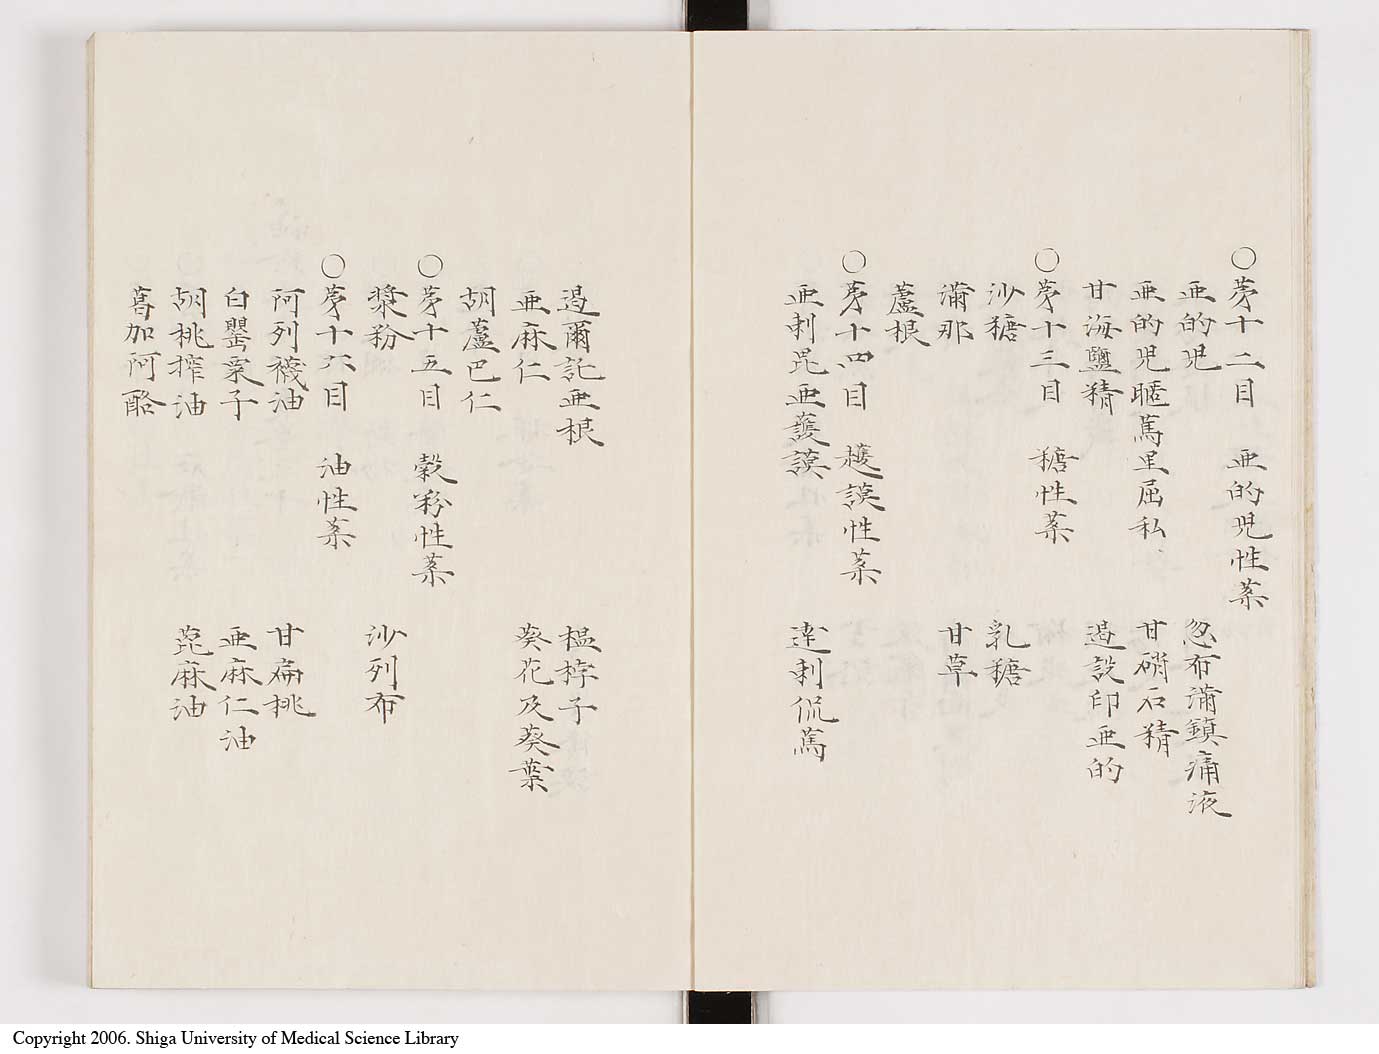 ○第十二目 亜的児性薬
亜的児 忽布満鎮痛液
亜的児 甘硝石精
甘海鹽精 過設印亜的
○第十三目 糖性薬
沙糖 乳糖
満那 甘草
蘆根
○第十四目 護謨性薬
亜剌毘亜護謨 達剌侃篤
過爾託亜根 榲桲子
亜麻仁 葵花及葵葉
胡蘆巴仁
○第十五目 穀粉性薬
漿粉 沙列布
○第十六目 油性薬
阿列襪油 甘扁桃
白罌粟子 亜麻仁油
胡桃搾油 萆麻油
葛加阿酪
Copyright 2006. Shiga University of Medical Science Library